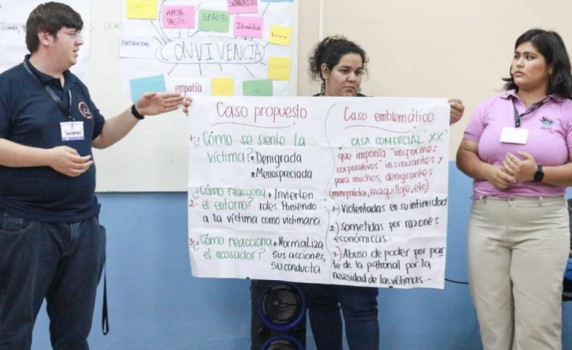 AMOR
SEGURO
Identidad
CONVIVENCIA
empatía
Caso propuesto
1.¿Cómo se siente la
víctima? • Demigrada
• Menospreciada
2. ¿Cómo reacciona • Invierten
el entorno? roles poniendo
a la víctima como victimaria
3. ¿Cómo reacciona • Normaliza
el acosador? sus acciones,
su conducta.
Caso emblemático
CASA COMERCIAL "XX"
que imponía "uniformes
corporativos" insinuantes y
para muchos, denigrantes
(minifalda, maquillaje, etc)
1.) Violentadas en su intimidad
2.) sometidas por razones
económicas.
3.) Abuso de poder por par
te de la patronal por la
necesidad de las víctimas.